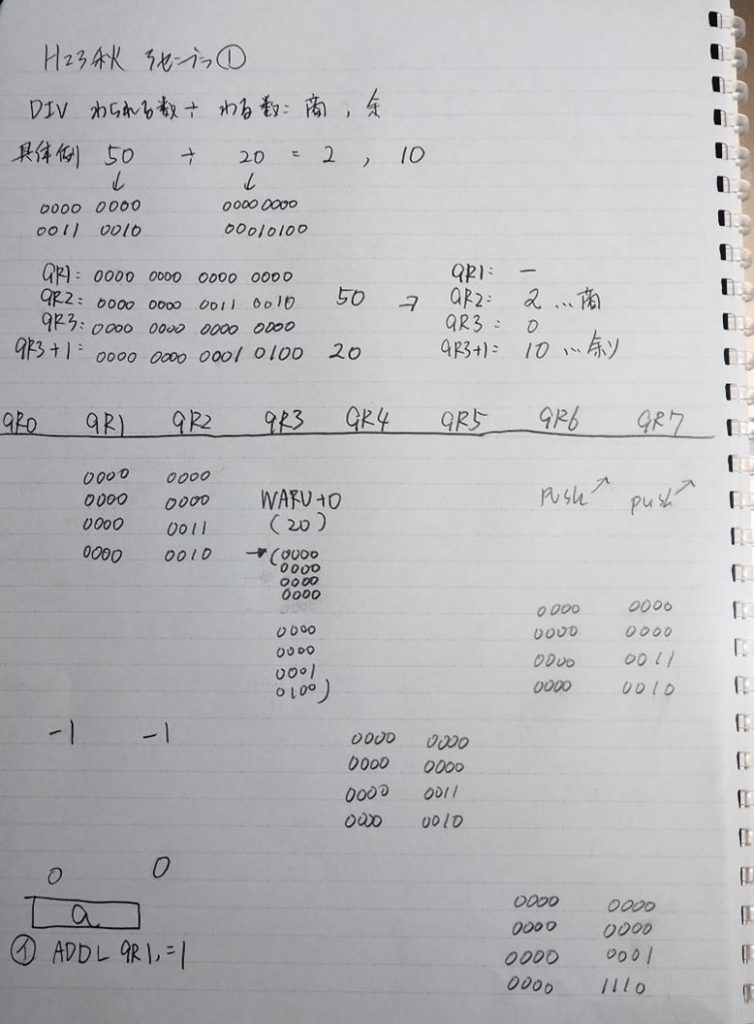 H23秋 アセンブラ①
DIV わられる数 ÷ わる数: 商 , 余
具体例 50 ÷ 20 = 2 , 10
↓ ↓
0000 0000 0000 0000
0011 0010 00010100
GR1: 0000 0000 0000 0000 GR1: —
GR2: 0000 0000 0011 0010 50 → GR2: 2 …商
GR3: 0000 0000 0000 0000 GR3 : 0
GR3+1: 0000 0000 0001 0100 20 GR3+1: 10 …余り
GR0 GR1 GR2 GR3 GR4 GR5 GR6 GR7
0000 0000
0000 0000 WARU+0 push↗ push↗
0000 0011 (20)
0000 0010 →(0000
0000
0000
0000 0000 0000
0000 0000 0000
0000 0000 0011
0001 0000 0010
0100)
-1 -1 0000 0000
0000 0000
0000 0011
0000 0010
0 0
a 0000 0000
0000 0000
① ADDL GR1,=1 0000 0001
0000 1110